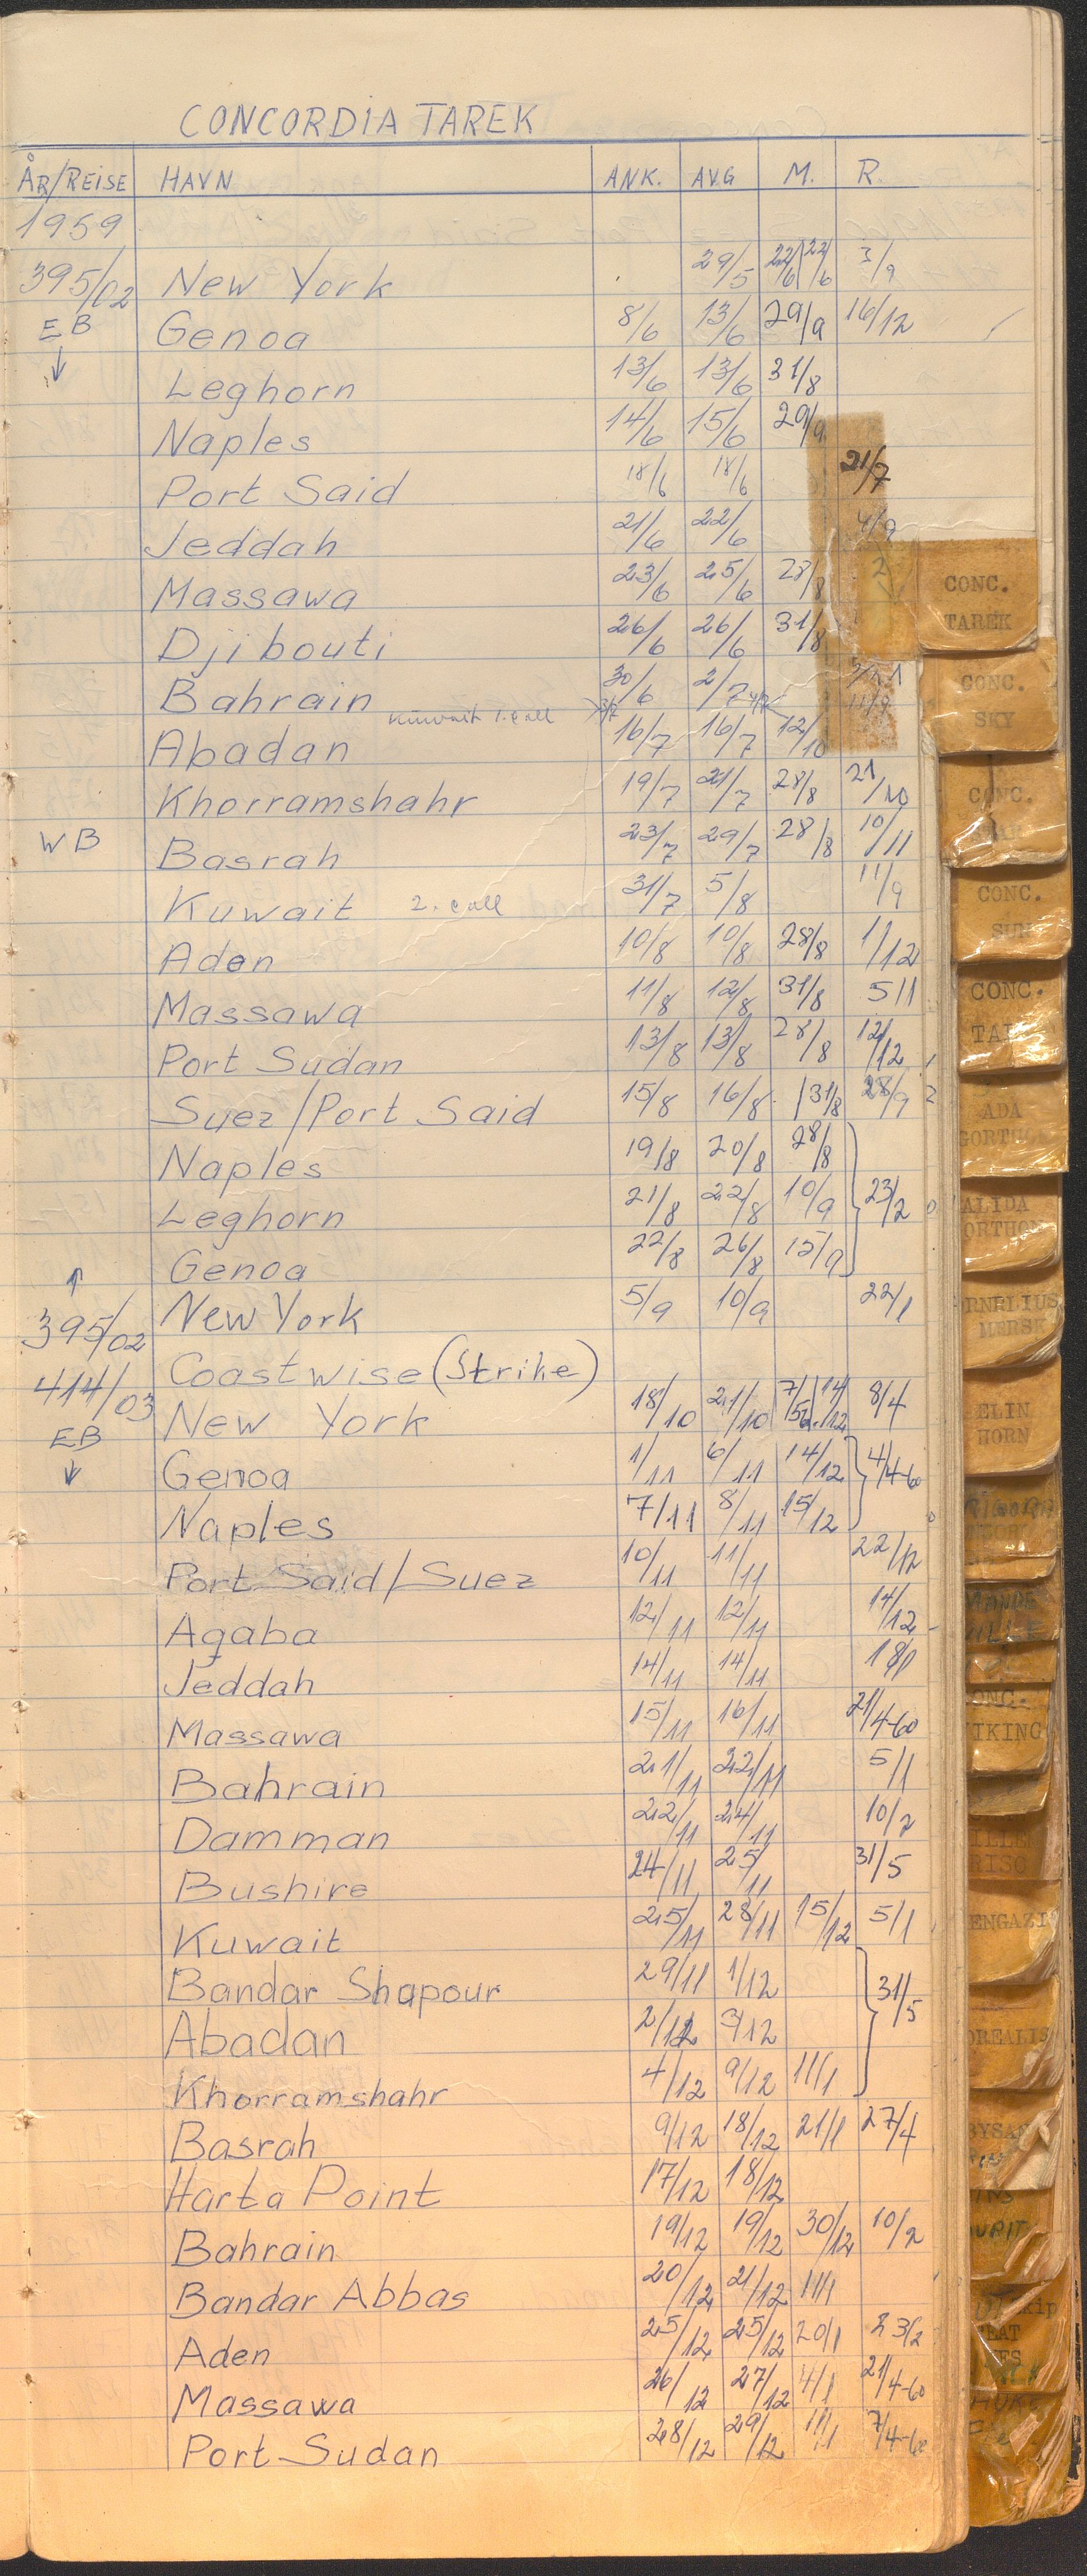 CONCORDIA TAREK
ÅR/REISE HAVN ANK. AVG M. R.
1959
395/02 New York 29/5 22/6 22/6 3/9
EB Genoa 8/6 13/6 29/9 16/12
↓ Leghorn 13/6 13/6 31/8
Naples 14/6 15/6 29/9
Port Said 18/6 18/6 21/7
Jeddah 21/6 22/6 4/9
Massawa 23/6 25/6 28/8
Djibouti 26/6 26/6 31/8
Bahrain 30/6 2/7
Kuwait 1. call
Abadan 16/7 16/7 12/10
Khorramshahr 19/7 21/7 28/8 21/10
WB Basrah 23/7 29/7 28/8 10/11
Kuwait 2. call 31/7 5/8 11/9
Aden 10/8 10/8 28/8 1/12
Massawa 11/8 12/8 31/8 5/1
Port Sudan 13/8 13/8 28/8 12/12
Suez/Port Said 15/8 16/8 31/8 28/9
Naples 19/8 20/8 28/8
Leghorn 21/8 22/8 10/9 23/2
Genoa 22/8 26/8 15/9
↑ New York 5/9 10/9 22/1
395/02
Coastwise (Strike)
414/03 New York 18/10 21/10 14/12 8/4
EB Genoa 1/11 6/11 14/12 4/4-60
↓ Naples 7/11 8/11 15/12
Port Said/Suez 10/11 11/11 22/12
Aqaba 12/11 12/11 14/12
Jeddah 14/11 14/11 18/1
Massawa 15/11 16/11 21/4-60
Bahrain 21/11 22/11 5/1
Damman 22/11 24/11 10/2
Bushire 24/11 25/11 31/5
Kuwait 25/11 28/11 15/12 5/1
Bandar Shapour 29/11 1/12
Abadan 2/12 3/12 31/5
Khorramshahr 4/12 9/12 11/1
Basrah 9/12 18/12 21/1 27/4
Harta Point 17/12 18/12
Bahrain 19/12 19/12 30/12 10/2
Bandar Abbas 20/12 21/12 11/1
Aden 25/12 25/12 20/1 23/2
Massawa 26/12 27/12 4/1 21/4-60
Port Sudan 28/12 29/12 11/1 7/4-60
CONC.
TAREK
CONC.
SKY
CONC.
CONC.
SUN
CONC.
ADA
ALIDA
MERSK
ELIN
HORN